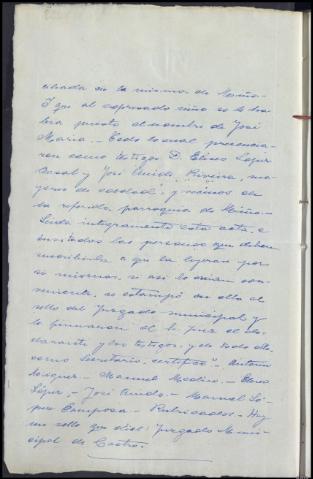 ciliada en la misma de Miño.-
Y que al expresado niño se le ha-
bía puesto el nombre de José
María.- Todo lo cual presencia-
ron como testigos D. Eliseo López
y José Amido, Riveira, ma-
yores de edad, y vecinos de
la referida parroquia de Miño.-
Leída integramente esta acta, e
invitadas las personas que deben
suscribirla a que la leyeran por
sí mismas, si así lo creían con-
veniente, se estampó en ella el
sello del Juzgado municipal y
la firmaron el Sr. Juez el de-
clarante y los testigos, y de todo ello
como Secretario, certifico".- Antonio
Manuel - Eliseo
López.- José Amido.- Manuel Ló-
pez Camposa.- Rubricados.- Hay
un sello que dice: Juzgado Muni-
cipal de Castro.-